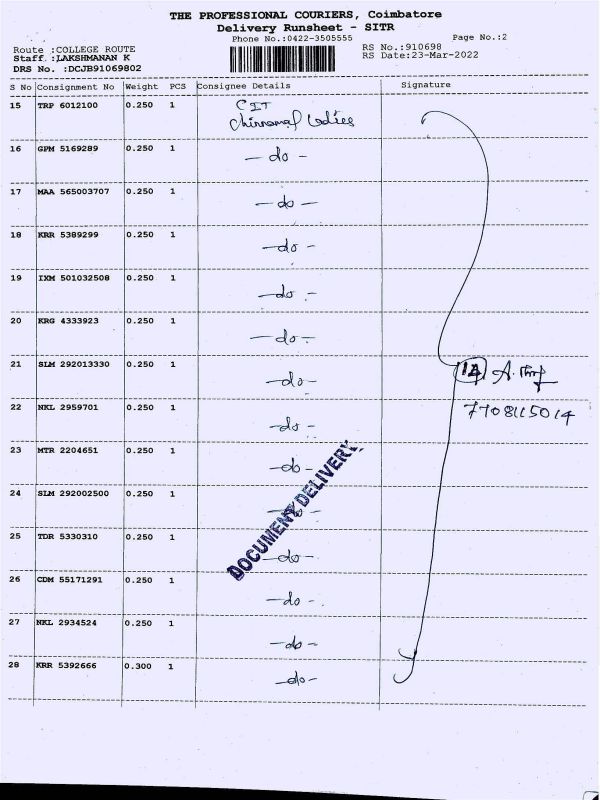 THE PROFESSIONAL COURIERS, Coimbatore
Delivery Runsheet - SITR
Phone No.:0422-3505555
Page No.:2
Route :COLLEGE ROUTE
RS No.:910698
Staff :LAKSHMANAN K
RS Date:23-Mar-2022
DRS No. :DCJB91069802
S No Consignment No Weight PCS Consignee Details Signature
15 TRP 6012100 0.250 1 CIT
Ladies
16 GPM 5169289 0.250 1 - do -
17 MAA 565003707 0.250 1 - do -
18 KRR 5389299 0.250 1 - do -
19 IXM 501032508 0.250 1 - do -
20 KRG 4333923 0.250 1 - do -
21 SLM 292013330 0.250 1 - do - 14 A.
22 NKL 2959701 0.250 1 - do - 7708115014
23 MTR 2204651 0.250 1 - do -
24 SLM 292002500 0.250 1 - do -
DOCUMENT DELIVERY
25 TDR 5330310 0.250 1 - do -
26 CDM 55171291 0.250 1 - do -
27 NKL 2934524 0.250 1 - do -
28 KRR 5392666 0.300 1 - do -